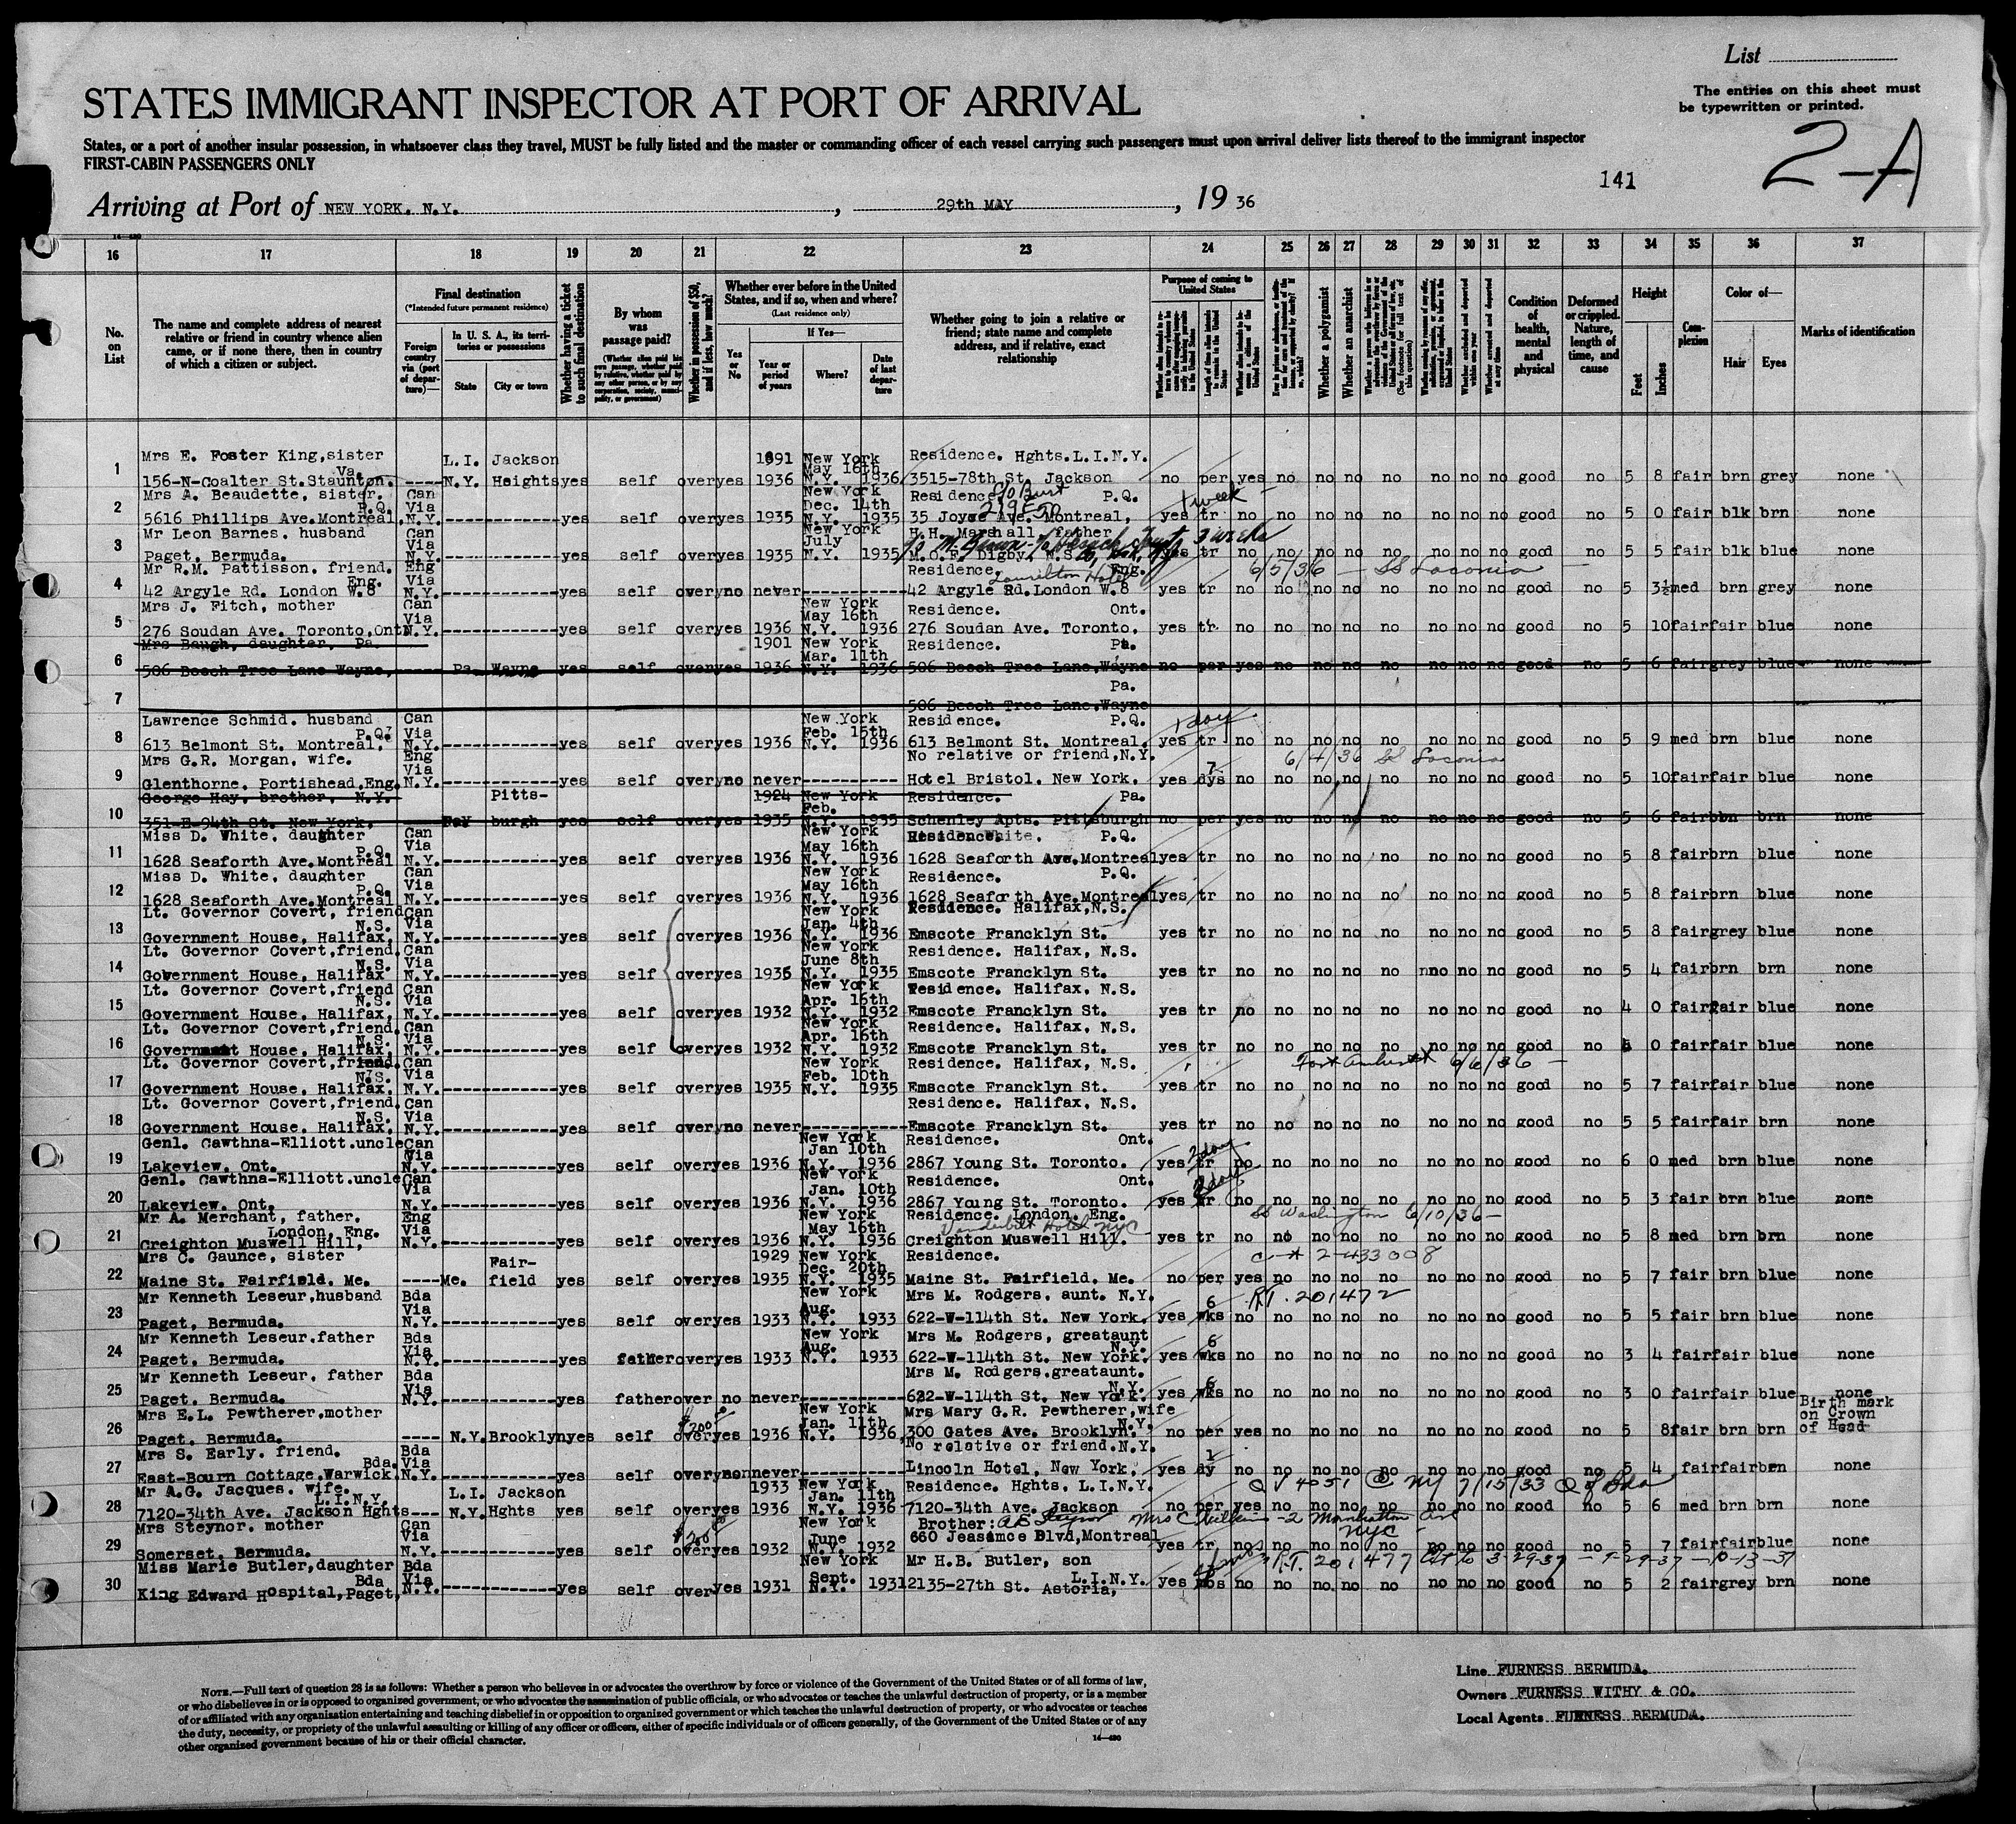 List
The entries on this sheet must
be typewritten or printed.
STATES IMMIGRANT INSPECTOR AT PORT OF ARRIVAL
States, or a port of another insular possession, in whatsoever class they travel, MUST be fully listed and the master or commanding officer of each vessel carrying such passengers must upon arrival deliver lists thereof to the immigrant inspector
FIRST-CABIN PASSENGERS ONLY
141
2-A
Arriving at Port of NEW YORK. N.Y. , 29th MAY , 19 36
16 17 18 19 20 21 22 23 24 25 26 27 28 29 30 31 32 33 34 35 36 37
No. on List
The name and complete address of nearest relative or friend in country whence alien came, or if none there, then in country of which a citizen or subject.
Final destination
(*Intended future permanent residence)
Foreign country via (port of departure)—
In U. S. A., its territories or possessions
State
City or town
Whether having a ticket to such final destination
By whom was passage paid?
(Whether alien paid his own passage, whether paid by relative, whether paid by any other person, or by any corporation, society, municipality, or government)
Whether in possession of $50, and if less, how much?
Whether ever before in the United States, and if so, when and where?
(Last residence only)
Yes or No
If Yes—
Year or period of years
Where?
Date of last departure
Whether going to join a relative or friend; state name and complete address, and if relative, exact relationship
Purpose of coming to United States
Whether a polygamist
Whether an anarchist
Condition of health, mental and physical
Deformed or crippled. Nature, length of time, and cause
Height
Feet
Inches
Complexion
Color of—
Hair
Eyes
Marks of identification
1 Mrs E. Foster King,sister L.I. Jackson 1891 New York May 16th Residence. Hghts.L.I.N.Y.
Va. 156-N-Coalter St.Staunton. ----N.Y. Heights yes self over yes 1936 N.Y. 1936 3515-78th St. Jackson no per yes no no no no no no no good no 5 8 fair brn grey none
2 Mrs A. Beaudette, sister. Can Via New York Dec. 14th Residence P.Q. 1 week
P.Q. 5616 Phillips Ave.Montreal, N.Y. yes self over yes 1935 N.Y. 1935 35 Joyce Ave. Montreal, yes tr no no no no no no no no good no 5 0 fair blk brn none
3 Mr Leon Barnes. husband Can Via New York July H.H. Marshall, father 3 weeks
Paget, Bermuda. N.Y. yes self over yes 1935 N.Y. 1935 Digby, N.S. yes tr no no no no no no no no good no 5 5 fair blk blue none
4 Mr R.M. Pattisson, friend. Eng Via Residence. Eng. Laurelton Hotel 6/5/36 — SS Laconia
Eng. 42 Argyle Rd. London W.8 N.Y. yes self over no never 42 Argyle Rd.London W.8 yes tr no no no no no no no no good no 5 3½ med brn grey none
5 Mrs J. Fitch, mother Can Via New York May 16th Residence. Ont.
276 Soudan Ave. Toronto,Ont N.Y. yes self over yes 1936 N.Y. 1936 276 Soudan Ave. Toronto. yes tr no no no no no no no no good no 5 10 fair fair blue none
6 Mrs Baugh, daughter. Pa. 1901 New York Mar. 11th Residence. Pa.
506 Beech Tree Lane Wayne, ---- Pa. Wayne yes self over yes 1936 N.Y. 1936 506 Beech Tree Lane,Wayne no per yes no no no no no no no good no 5 6 fair grey blue none
7 Pa.
506 Beech Tree Lane.Wayne
8 Lawrence Schmid. husband Can Via New York Feb. 15th Residence. P.Q. 1 day
P.Q. 613 Belmont St. Montreal, N.Y. yes self over yes 1936 N.Y. 1936 613 Belmont St. Montreal. yes tr no no no no no no no no good no 5 9 med brn blue none
9 Mrs G.R. Morgan, wife. Eng Via No relative or friend,N.Y. 6/4/36 SS Laconia
Glenthorne. Portishead,Eng. N.Y. yes self over no never Hotel Bristol. New York. yes 7 dys no no no no no no no no good no 5 10 fair fair blue none
10 George Hay, brother, N.Y. Pitts- 1924 New York Feb. Residence. Pa.
351-E-94th St. New York. burgh yes self over yes 1935 N.Y. 1935 Schenley Apts. Pittsburgh no per yes no no no no no no no good no 5 6 fair brn brn none
11 Miss D. White. daughter Can Via New York May 16th P.Q.
P.Q. 1628 Seaforth Ave.Montreal N.Y. yes self over yes 1936 N.Y. 1936 1628 Seaforth Ave.Montreal yes tr no no no no no no no no good no 5 8 fair brn blue none
12 Miss D. White, daughter Can Via New York May 16th Residence. P.Q.
P.Q. 1628 Seaforth Ave.Montreal N.Y. yes self over yes 1936 N.Y. 1936 1628 Seaforth Ave.Montreal yes tr no no no no no no no no good no 5 8 fair brn blue none
13 Lt. Governor Covert, friend Can Via New York Jan. 4th Residence. Halifax,N.S.
N.S. Government House, Halifax, N.Y. yes self over yes 1936 N.Y. 1936 Emscote Francklyn St. yes tr no no no no no no no no good no 5 8 fair grey blue none
14 Lt. Governor Covert,friend. Can Via New York June 8th Residence. Halifax, N.S.
N.S. Government House, Halifax N.Y. yes self over yes 1935 N.Y. 1935 Emscote Francklyn St. yes tr no no no no no nno no no good no 5 4 fair brn brn none
15 Lt. Governor Covert,friend Can Via New York Apr. 16th Residence. Halifax, N.S.
N.S. Government House, Halifax, N.Y. yes self over yes 1932 N.Y. 1932 Emscote Francklyn St. yes tr no no no no no no no no good no 4 0 fair fair blue none
16 Lt. Governor Covert,friend. Can Via New York Apr. 16th Residence. Halifax, N.S.
N.S. Government House, Halifax, N.Y. yes self over yes 1932 N.Y. 1932 Emscote Francklyn St. yes tr no no no no no no no no good no 0 fair fair blue none
17 Lt. Governor Covert,friend. Can Via New York Feb. 10th Residence. Halifax, N.S. Fort Amherst 6/6/36 —
N.S. Government House, Halifax. N.Y. yes self over yes 1935 N.Y. 1935 Emscote Francklyn St. yes tr no no no no no no no no good no 5 7 fair fair blue none
18 Lt. Governor Covert,friend. Can Via Residence. Halifax, N.S.
N.S. Government House, Halifax, N.Y. yes self over no never Emscote Francklyn St. yes tr no no no no no no no no good no 5 5 fair fair brn none
19 Genl. Cawthna-Elliott.uncle Can Via New York Jan 10th Residence. Ont. 2 day
Lakeview. Ont. N.Y. yes self over yes 1936 N.Y. 1936 2867 Young St. Toronto. yes tr no no no no no no no no good no 6 0 med brn blue none
20 Genl. Cawthna-Elliott.uncle Can Via New York Jan. 10th Residence. Ont. 2 day
Lakeview, Ont. N.Y. yes self over yes 1936 N.Y. 1936 2867 Young St. Toronto. yes tr no no no no no no no no good no 5 3 fair brn blue none
21 Mr A. Merchant, father. Eng Via New York May 16th Residence. London, Eng. Vanderbilt Hotel NYC SS Washington 6/10/36 —
London, Eng. Creighton Muswell Hill, N.Y. yes self over yes 1936 N.Y. 1936 Creighton Muswell Hill. yes tr no no no no no no no no good no 5 8 med brn brn none
22 Mrs C. Gaunce, sister Fair- 1929 New York Dec. 20th Residence. 2-433008
Maine St. Fairfield. Me. ----Me. field yes self over yes 1935 N.Y. 1935 Maine St. Fairfield. Me. no per yes no no no no no no no good no 5 7 fair brn blue none
23 Mr Kenneth Leseur,husband Bda Via New York Aug. Mrs M. Rodgers, aunt. N.Y. R.T. 201472
Paget, Bermuda. N.Y. yes self over yes 1933 N.Y. 1933 622-W-114th St. New York. yes 6 wks no no no no no no no no good no 5 5 fair brn blue none
24 Mr Kenneth Leseur.father Bda Via New York Aug. Mrs M. Rodgers, greataunt N.Y.
Paget. Bermuda. N.Y. yes father over yes 1933 N.Y. 1933 622-W-114th St. New York. yes 6 wks no no no no no no no no good no 3 4 fair fair blue none
25 Mr Kenneth Leseur. father Bda Via Mrs M. Rodgers.greataunt. N.Y.
Paget. Bermuda. N.Y. yes father over no never 622-W-114th St. New York. yes 6 wks no no no no no no no no good no 3 0 fair fair blue none
26 Mrs E.L. Pewtherer,mother New York Jan. 11th Mrs Mary G.R. Pewtherer,wife N.Y. Birth mark on Crown of Head
Paget. Bermuda. ---- N.Y. Brooklyn yes self over $200 yes 1936 N.Y. 1936 300 Gates Ave. Brooklyn. no per yes no no no no no no no good no 5 8 fair brn brn
27 Mrs S. Early. friend. Bda Via No relative or friend.N.Y.
Bda. East-Bourn Cottage.Warwick. N.Y. yes self over non never Lincoln Hotel, New York. yes 1 dy no no no no no no no no good no 5 4 fair fair brn none
28 Mr A.G. Jacques. wife. L.I. Jackson 1933 New York Jan. 11th Residence. Hghts. L.I.N.Y. QV 4051 @ NY 7/15/33 Q of Bda
L.I.N.Y. 7120-34th Ave. Jackson Hghts--- N.Y. Hghts yes self over yes 1936 N.Y. 1936 7120-34th Ave. Jackson no per yes no no no no no no no good no 5 6 med brn brn none
29 Mrs Steynor. mother Can Via New York June Brother: Mrs C Wilkins -2 Manhattan Ave NYC
Somerset, Bermuda. N.Y. yes self over $200 yes 1932 N.Y. 1932 660 Jeasamce Blvd,Montreal yes tr no no no no no no no no good no 5 7 fair fair blue none
30 Miss Marie Butler,daughter Bda Via New York Sept. Mr H.B. Butler, son R.T. 201477 3-29-37 — 9-29-37 — 10-13-37
Bda King Edward Hospital,Paget, N.Y. yes self over yes 1931 N.Y. 1931 2135-27th St. Astoria, L.I.N.Y. yes mos no no no no no no no no good no 5 2 fair grey brn none
NOTE.—Full text of question 28 is as follows: Whether a person who believes in or advocates the overthrow by force or violence of the Government of the United States or of all forms of law,
or who disbelieves in or is opposed to organized government, or who advocates the assassination of public officials, or who advocates or teaches the unlawful destruction of property, or is a member
of or affiliated with any organization entertaining and teaching disbelief in or opposition to organized government or which teaches the unlawful destruction of property, or who advocates or teaches
the duty, necessity, or propriety of the unlawful assaulting or killing of any officer or officers, either of specific individuals or of officers generally, of the Government of the United States or of any
other organized government because of his or their official character.
14—480
Line FURNESS BERMUDA.
Owners FURNESS WITHY & CO.
Local Agents FURNESS BERMUDA.